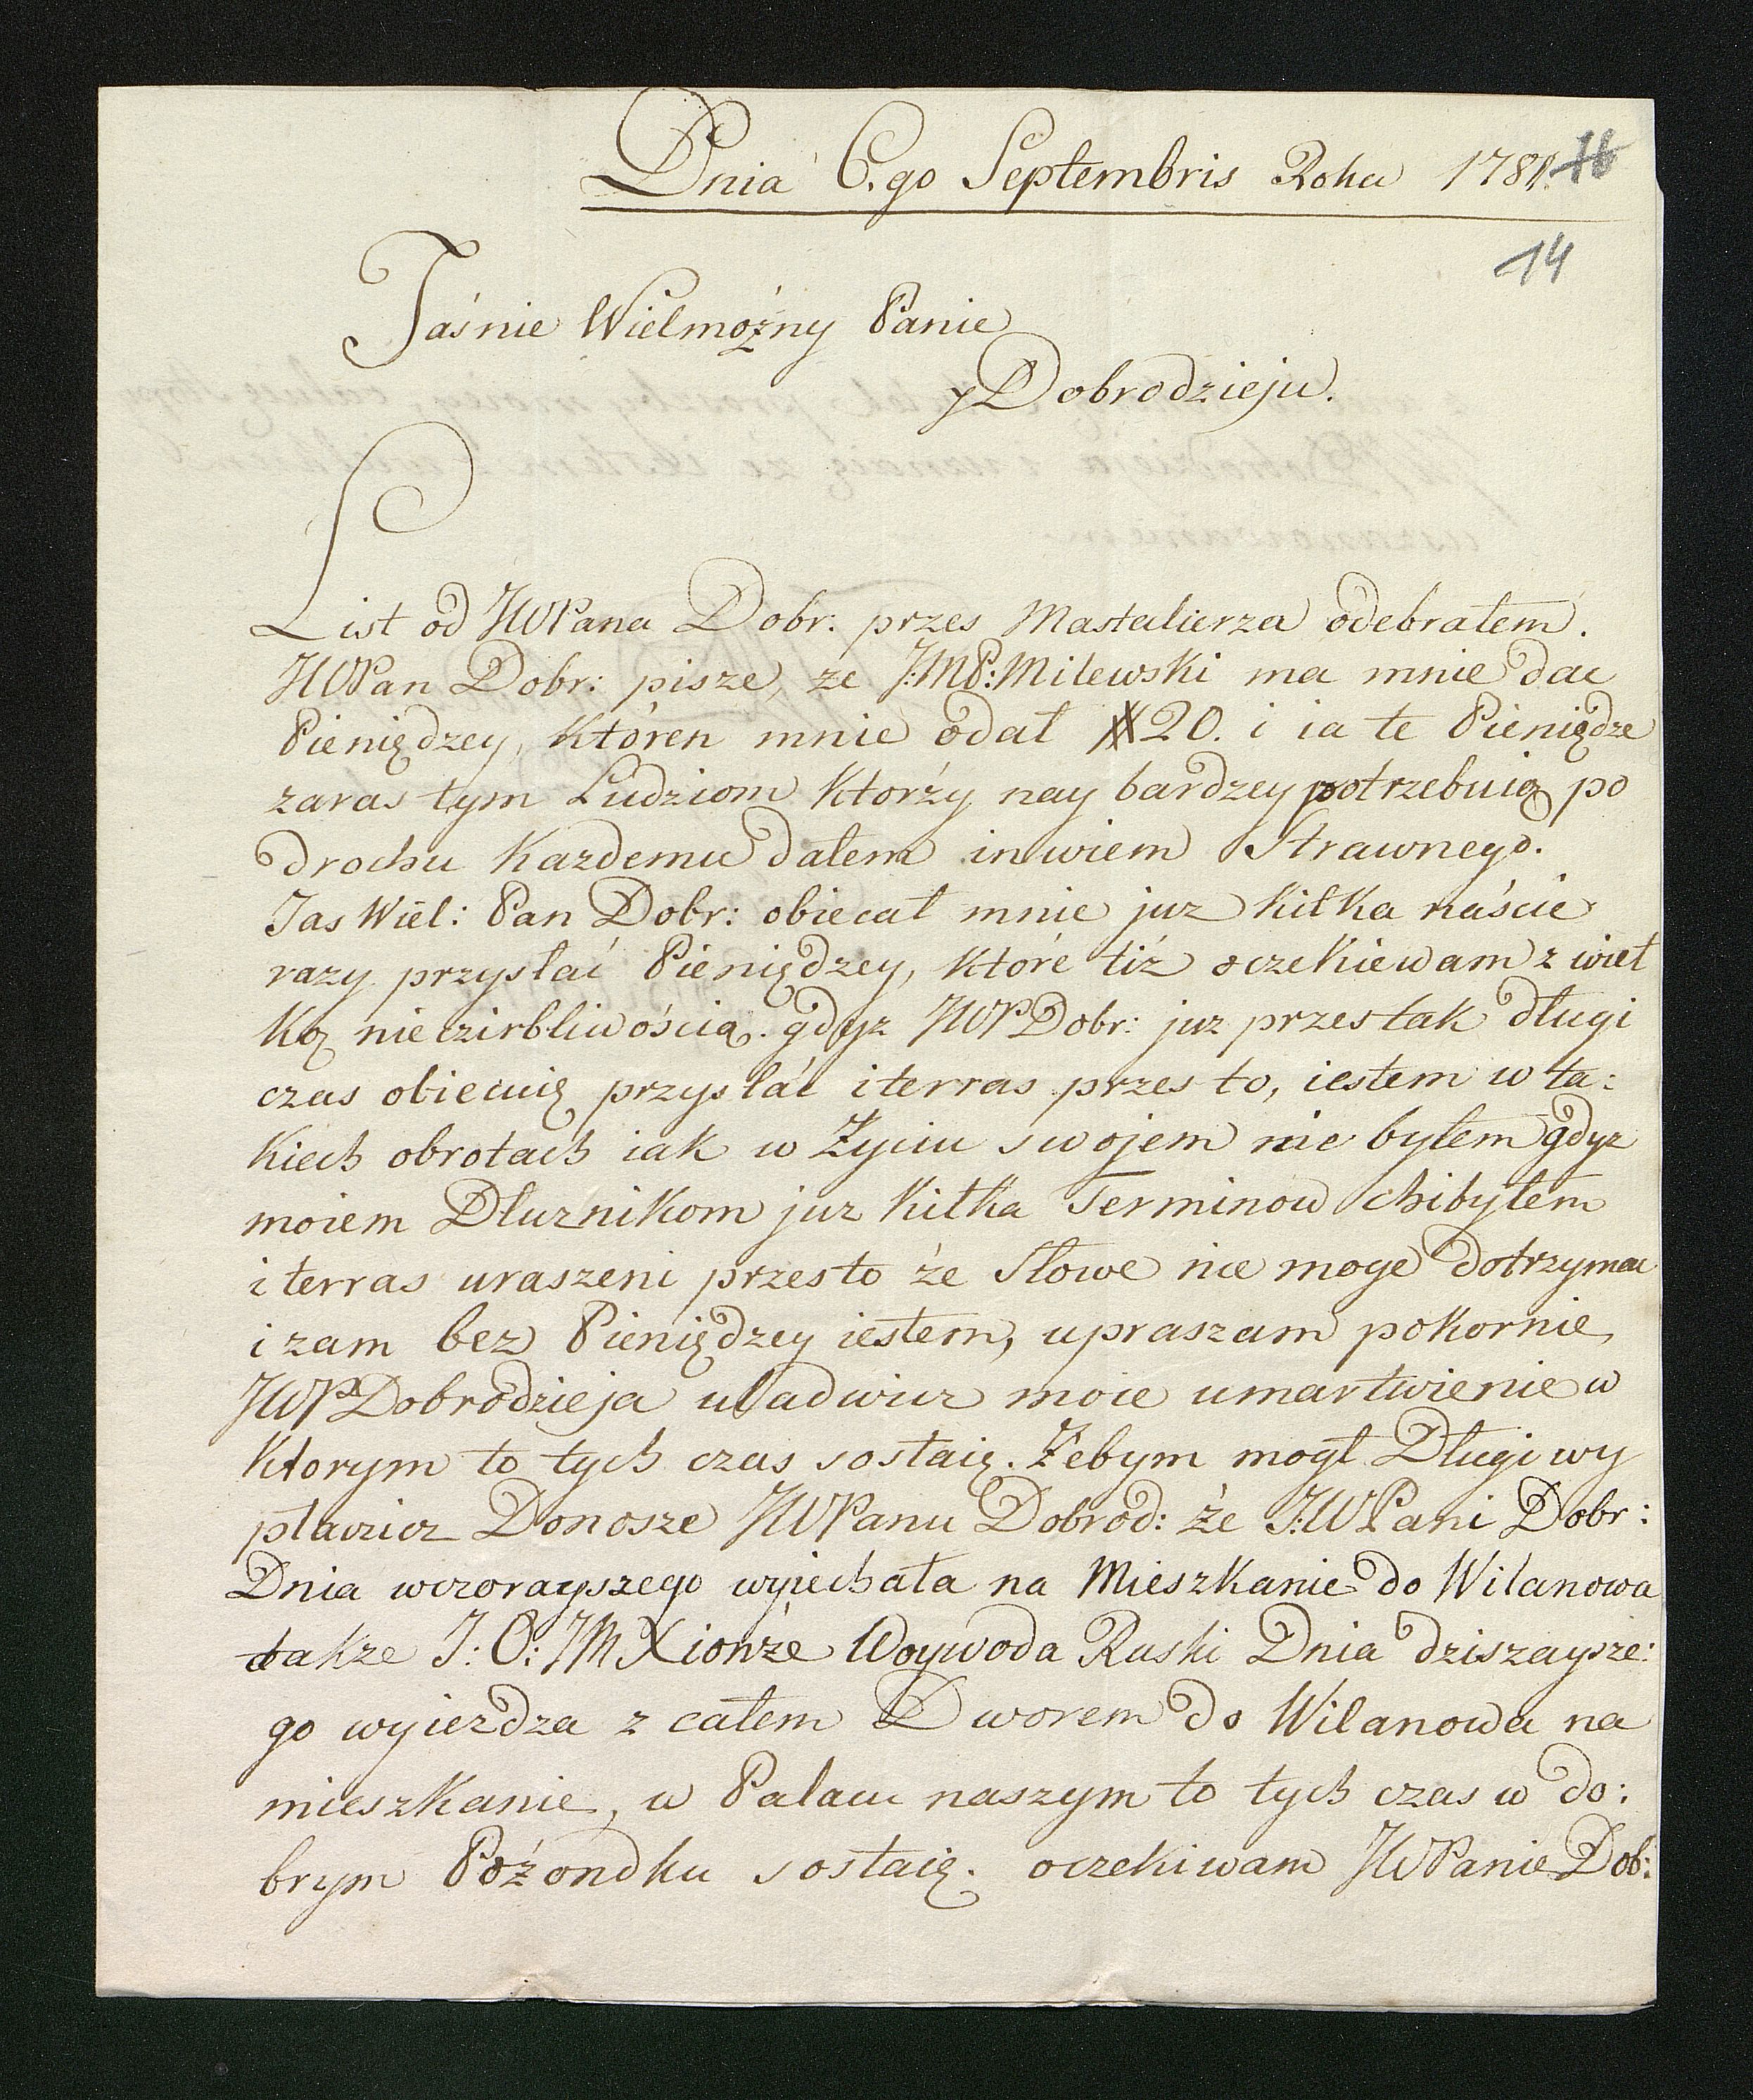 Dnia 6.go Septembris Roku 1781.
16
14
Jaśnie Wielmożny Panie
y Dobrodzieju.
List od JWPana Dobr: przes Mastalierza odebrałem.
JWPan Dobr: pisze, ze J:MP: Milewski ma mnie dac
Pieniędzey, Ktören mnie odał # 20. i ia te Pieniędze
zaras tym Ludziom Ktorzy nay bardzey potrzebuią po
drochu Kazdemu dałem in wiem Strawnego.
Jas Wiel: Pan Dobr: obiecał mnie juz kiłka naście
razy przysłać Pieniędzey, Ktore tiż oczekiewam z wieł
Ką nie czirbliwością. gdyz JWPDobr: juz przes tak długi
czas obiecuię przysłać i terras przes to, iestem w ta:
Kiech obrotach iak w Zyciu swojem nie byłem gdyz
moiem Dłuznikom juz Kiłka Terminow chibyłem
i terras uraszeni przesto że Słowe nie moge dotrzymac
i zam bez Pieniędzey iestem, upraszam pokornie
JWPDobrodzieja uladwicz moie umartwienie w
Ktorym to tych czas sostaię. Zebym mogł Długi wy
płaczicz Donosze JWPanu Dobrod: że J:WPani Dobr:
Dnia wczorayszego wyiechała na Mieszkanie do Wilanowa
takze J: O: JM Xionże Woywoda Ruski Dnia dziszaysze:
go wyiezdza z całem Dworem do Wilanowa na
mieszkanie, w Palacu naszym to tych czas w do:
brym Pożondku sostaię. oczekiwam JWPanie Dob: